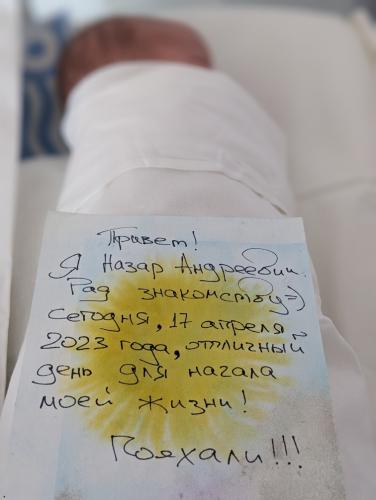 Привет!
Я Назар Андреевич.
Рад знакомству=)
Сегодня, 17 апреля
2023 года, отличный
день для начала
моей жизни!
Поехали!!!